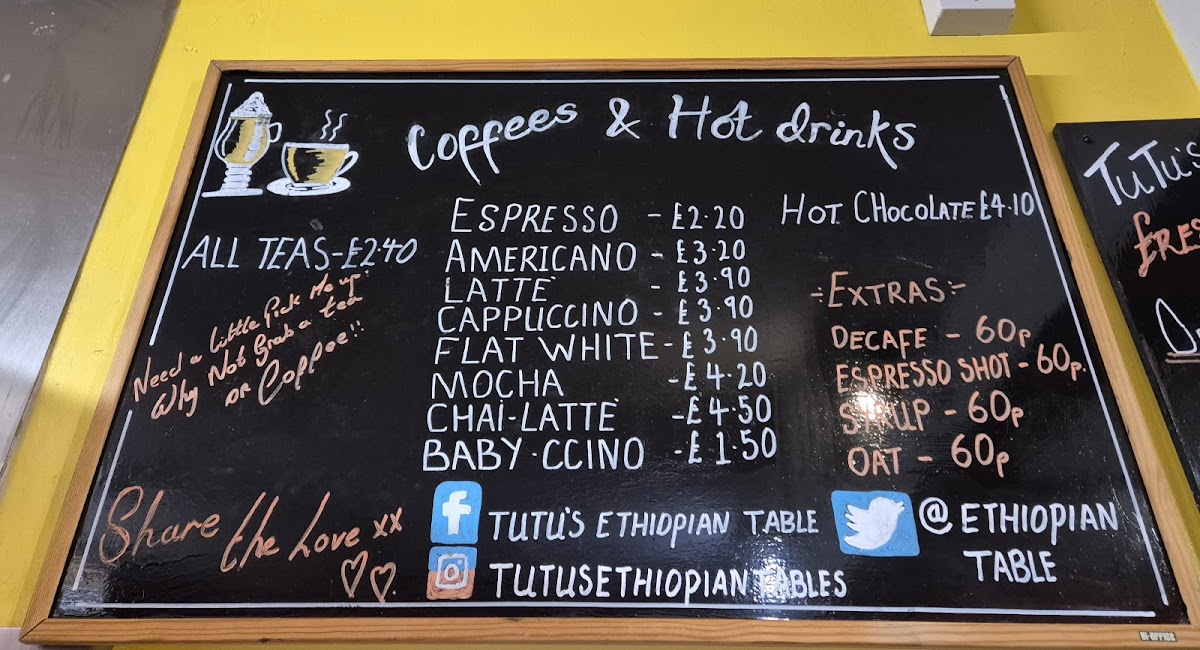 Coffees & Hot drinks
ESPRESSO - £2.20
AMERICANO - £3.20
LATTE - £3.90
CAPPUCCINO - £3.90
FLAT WHITE - £3.90
MOCHA - £4.20
CHAI-LATTE - £4.50
BABY.CCINO - £1.50
HOT CHOCOLATE £4.10
ALL TEAS - £2.40
Need a little Pick Me up?
Why Not Grab a tea
or Coffee!!
-:EXTRAS:-
DECAFE - 60p
ESPRESSO SHOT - 60p.
SYRUP - 60p
OAT - 60p
Share the Love xx
TUTU'S ETHIOPIAN TABLE
TUTUSETHIOPIANTABLES
@ETHIOPIAN
TABLE
BI-OFFICE
TUTU'S
FRES